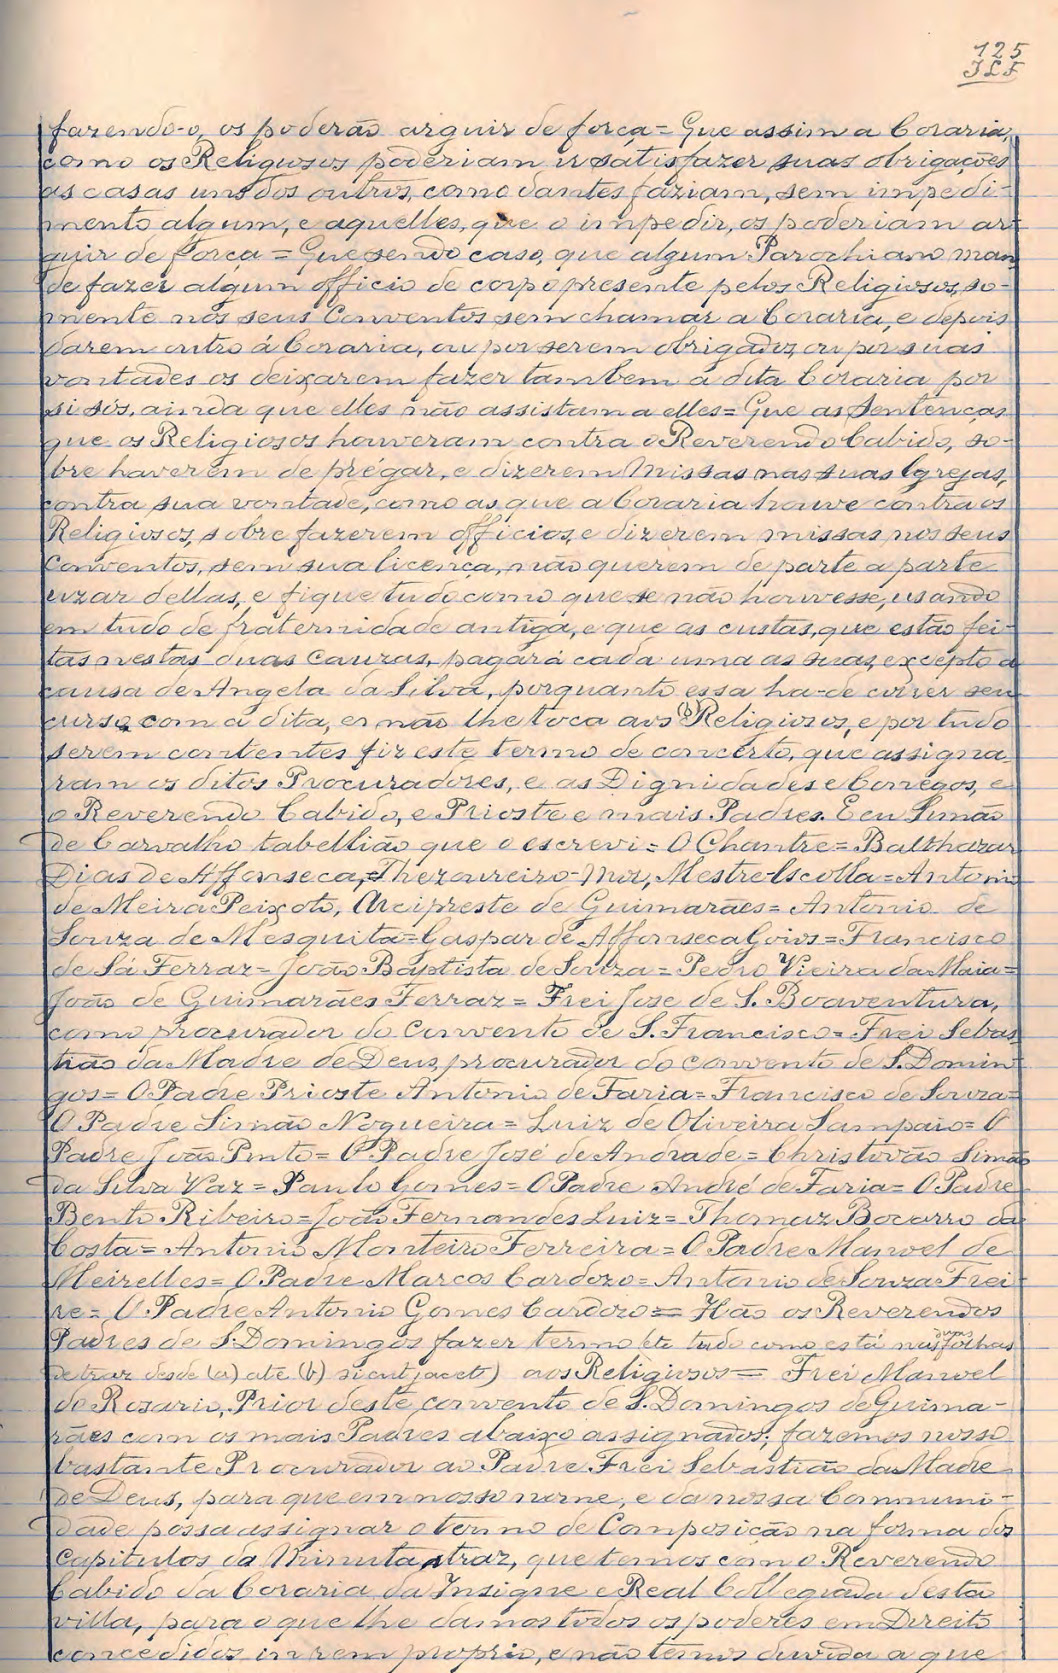 125
JLF
fazendo-o, os poderão arguir de força = Que assim a Coraria,
como os Religiosos poderiam ir satisfazer suas obrigações
ás casas uns dos outros, como dantes faziam, sem impedi-
mento algum, e aquelles, que o impedir, os poderiam ar-
guir de força = Que sendo caso, que algum Parochiano man-
de fazer algum officio de corpo presente pelos Religiosos, so-
mente nos seus Conventos sem chamar a Coraria, e depois
darem outro á Coraria, ou por serem obrigados, ou por suas
vontades os deixarem fazer tambem á dita Coraria por
si sós, ainda que elles não assistam a elles = Que as sentenças
que os Religiosos houveram contra o Reverendo Cabido, so-
bre haverem de prégar, e dizerem Missas nas suas Igrejas,
contra sua vontade, como as que a Coraria houve contra os
Religiosos, sobre fazerem officios, e dizerem missas nos seus
Conventos, sem sua licença, não querem de parte a parte
uzar dellas, e fique tudo como que se não houvesse, usando
em tudo de fraternidade antiga, e que as custas, que estão fei-
tas nestas duas causas, pagará cada uma as suas, excepto a
causa de Angela da Silva, porquanto essa ha-de correr seu
curso, com a dita, e não lhe toca aos (b) Religiosos, e por tudo
serem contentes fiz este termo de concerto, que assigna-
ram os ditos Procuradores, e as Dignidades e Conegos, e
o Reverendo Cabido, e Prioste e mais Padres. E eu Simão
de Carvalho tabellião que o escrevi = O Chantre = Balthazar
Dias de Affonseca, = Thezoureiro-Mor, Mestre-Escolla = Antonio
de Meira Peixoto, Arcipreste de Guimarães = Antonio de
Souza de Mesquita = Gaspar de Affonseca Goios = Francisco
de Sá Ferraz = João Baptista de Souza = Pedro Vieira da Maia =
João de Guimarães Ferraz = Frei Jose de S. Boaventura,
como procurador do Convento de S. Francisco = Frei Sebas-
tião da Madre de Deus, procurador do convento de S. Domin-
gos = O Padre Prioste Antonio de Faria = Francisco de Souza =
O Padre Simão Nogueira = Luiz de Oliveira Sampaio = O
Padre João Pinto = O Padre José de Andrade = Christovão Simão
da Silva Vaz = Paulo Gomes = O Padre André de Faria = O Padre
Bento Ribeiro = João Fernandes Luiz = Thomaz Bocarro da
Costa = Antonio Monteiro Ferreira = O Padre Manoel de
Meirelles = O Padre Marcos Cardozo = Antonio de Souza Frei-
re = O Padre Antonio Gomes Cardozo = Hão os Reverendos
Padres de S. Domingos fazer termo (etc tudo como está nas duas folhas
de traz desde (a) até (b) sicut jacet) aos Religiosos = Frei Manoel
do Rosario, Prior deste convento de S. Domingos de Guima-
rães com os mais Padres abaixo assignados; fazemos nosso
bastante Procurador ao Padre Frei Sebastião da Madre
de Deus, para que em nosso nome, e da nossa Communi-
dade possa assignar o termo de Composição na forma dos
Capitulos da Minuta atraz, que temos com o Reverendo
Cabido da Coraria da Insigne e Real Collegiada desta
villa, para o que lhe damos todos os poderes em Direito
concedidos in rem propria, e não temos duvida a que